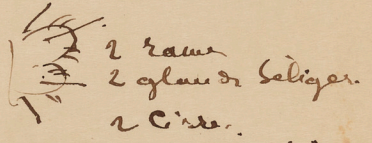 2 rame
2 glands Séliger.
2 Cirre.